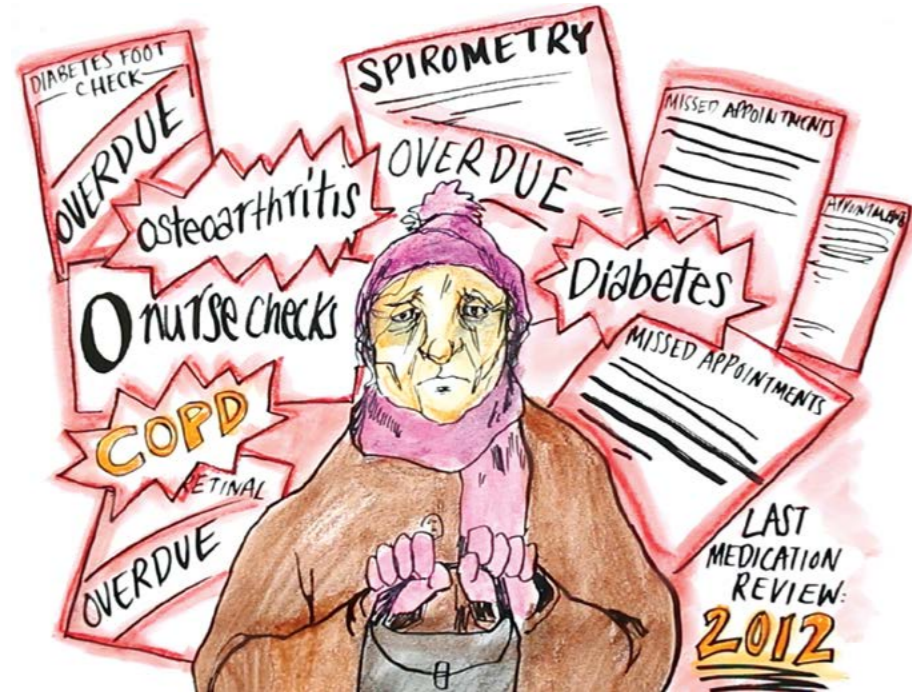 DIABETES FOOT
CHECK
OVERDUE
SPIROMETRY
OVERDUE
MISSED APPOINTMENTS
APPOINTMENTS
Osteoarthritis
Diabetes
0 nurse checks
MISSED APPOINTMENTS
COPD
RETINAL
OVERDUE
LAST
MEDICATION
REVIEW:
2012